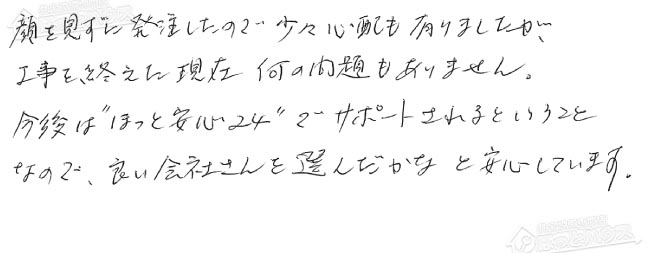 顔を見ずに発注したので少々心配も有りましたが、
工事を終えた現在何の問題もありません。
今後は"ほっと安心24"でサポートされるということ
なので、良い会社さんを選んだかなと安心しています。